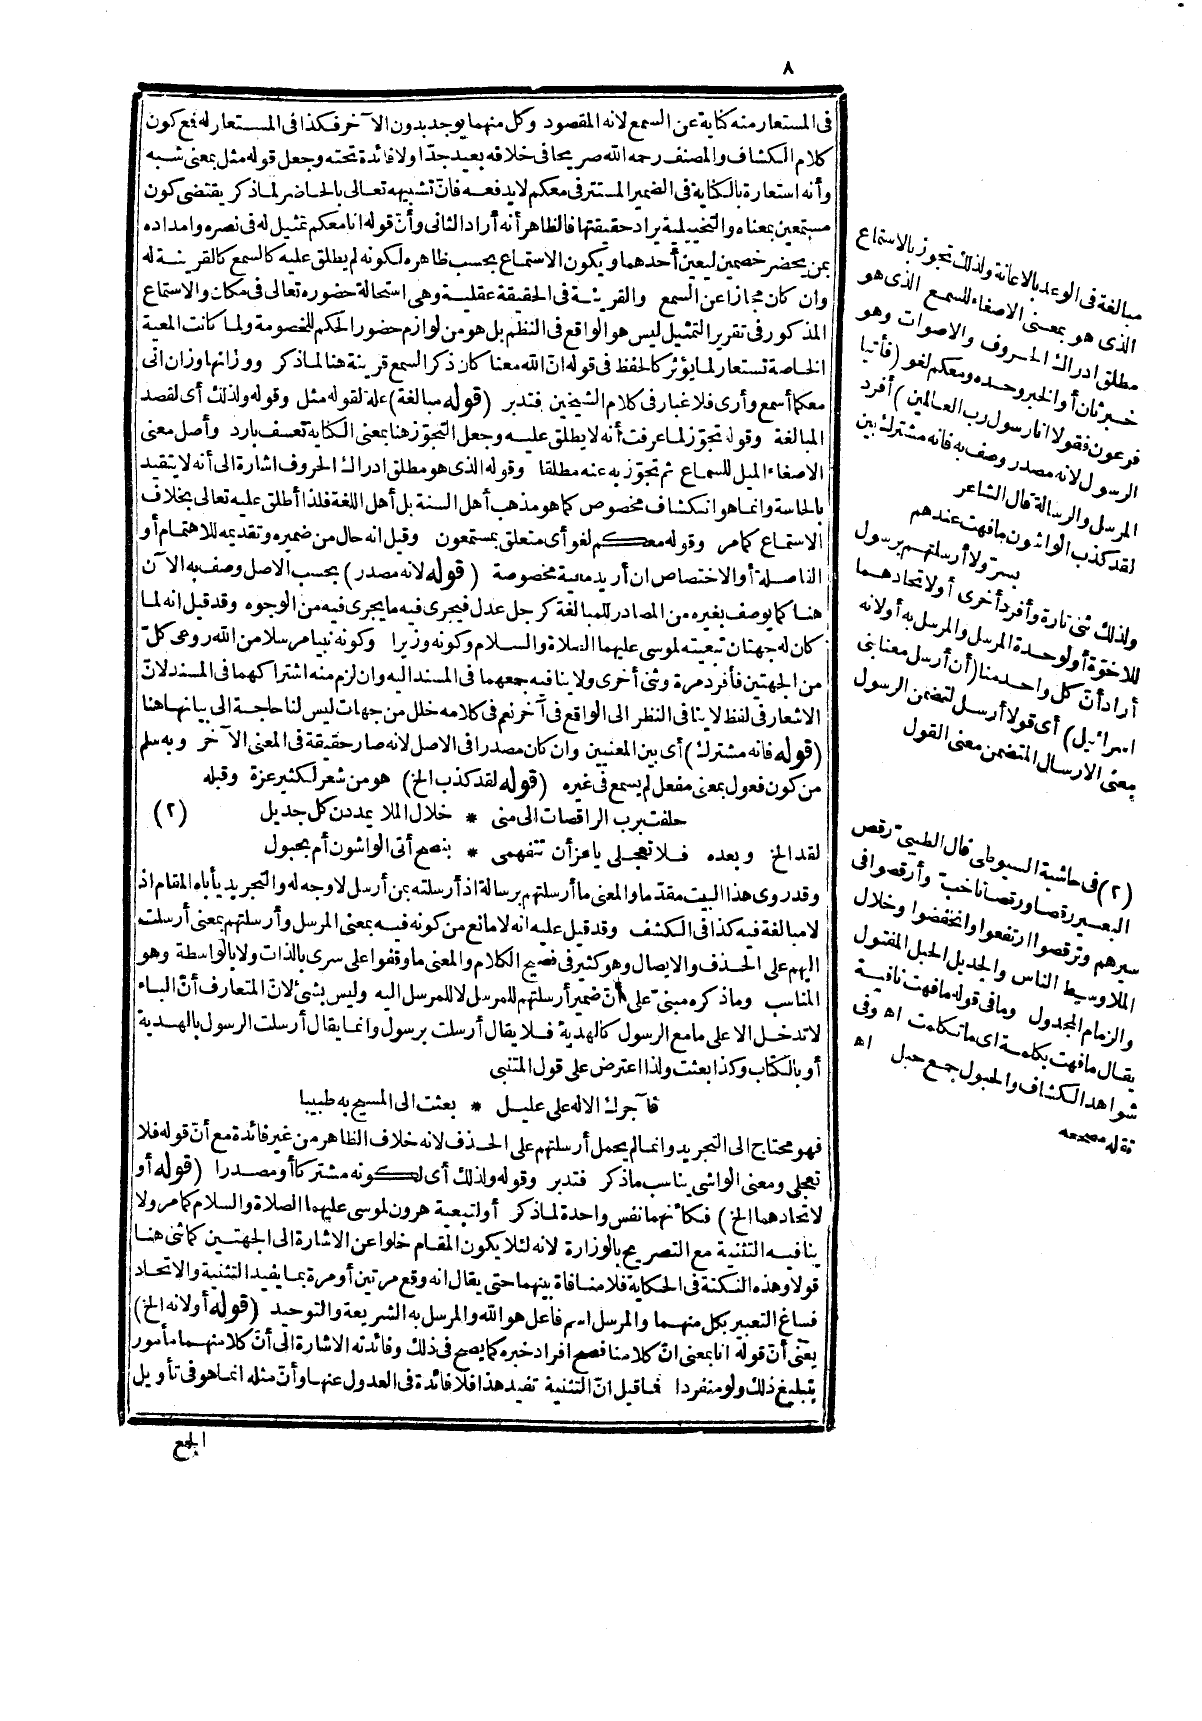 ٨
فى المستعار منه كناية عن السمع لانه المقصود وكل منهما يوجد بدون الآخر فكذا فى المستعار له فمع كون
كلام الكشاف والمصنف رحمه الله صريحا فى خلافه بعيد جدّا ولا فائدة تحته وجعل قوله مثل بمعنى شبه
وأنه استعارة بالكناية فى الضمير المستتر فى معكم لا يدفعه فانّ تشبيهه تعالى بالحاضر لما ذكر يقتضى كون
مستمعين بمعناه والتخييلية يراد حقيقتها فالظاهر أنه أراد الثانى وأنّ قوله انا معكم تمثيل له فى نصره وامداده
بمن يحضر خصمين ليعين أحدهما ويكون الاستماع بحسب ظاهره لكونه لم يطلق عليه كالسمع كالقرينة له
وان كان مجازا عن السمع والقرينة فى الحقيقة عقلية وهى استحالة حضوره تعالى فى مكان والاستماع
المذكور فى تقرير التمثيل ليس هو الواقع فى النظم بل هو من لوازم حضور الحكم للخصومة ولما كانت المعية
الخاصة تستعار لما يؤثر كالحفظ فى قوله انّ الله معنا كان ذكر السمع قرينة هنا لما ذكر ووزانها وزان انى
معكما أسمع وأرى فلا غبار فى كلام الشيخين فتدبر (قوله مبالغة) علة لقوله مثل وقوله ولذلك أى لقصد
المبالغة وقوله تجوّز لما عرفت أنه لا يطلق عليه وجعل التجوّز هنا بمعنى الكناية تعسف بارد وأصل معنى
الاصغاء الميل للسماع ثم تجوّز به عنه مطلقا وقوله الذى هو مطلق ادراك الحروف اشارة الى أنه لا يتقيد
بالحاسة وانما هو انكشاف مخصوص كما هو مذهب أهل السنة بل أهل اللغة فلذا أطلق عليه تعالى بخلاف
الاستماع كما مر وقوله معكم لغو أى متعلق بمستمعون وقيل انه حال من ضميره وتقديمه للاهتمام أو
الفاصلة أو الاختصاص ان أريد معية مخصوصة (قوله لانه مصدر) بحسب الاصل وصف به الآن
هنا كما يوصف بغيره من المصادر للمبالغة كرجل عدل فيجرى فيه ما يجرى فيه من الوجوه وقد قيل انه لما
كان له جهتان تبعيته لموسى عليهما الصلاة والسلام وكونه وزيرا وكونه نبيا مرسلا من الله روعى كلّ
من الجهتين فأفرد مرة وثنى أخرى ولا ينافيه جمعهما فى المسند اليه وان لزم منه اشتراكهما فى المسند لانّ
الاشعار فى لفظ لا ينافى النظر الى الواقع فى آخر نعم فى كلامه خلل من جهات ليس لنا حاجة الى بيانها هنا
(قوله فانه مشترك) أى بين المعنيين وان كان مصدرا فى الاصل لانه صار حقيقة فى المعنى الآخر وبه سلم
من كون فعول بمعنى مفعل لم يسمع فى غيره (قوله لقد كذب الخ) هو من شعر لكثير عزة وقبله
حلفت برب الراقصات الى منى * خلال الملا يمددن كل جديل (٢)
لقد الخ وبعده فلا تعجلى يا عز أن تتفهمى * بنصح أتى الواشون أم بحبول
وقد روى هذا البيت مقدّما والمعنى ما أرسلتهم برسالة اذ أرسلته بمن أرسل لا وجه له والتجريد يأباه المقام اذ
لا مبالغة فيه كذا فى الكشف وقد قيل عليه انه لا مانع من كونه فيه بمعنى المرسل وأرسلتهم بمعنى أرسلت
اليهم على الحذف والايصال وهو كثير فى فصيح الكلام والمعنى ما وقفوا على سرى بالذات ولا بالواسطة وهو
المناسب وما ذكره مبنىّ على أنّ ضمير أرسلتهم للمرسل لا للمرسل اليه وليس بشئ لانّ المتعارف أنّ الباء
لا تدخل الا على ما مع الرسول كالهدية فلا يقال أرسلت برسول وانما يقال أرسلت الرسول بالهدية
أو بالكتاب وكذا بعثت ولذا اعترض على قول المتنبى
فآجرك الاله على عليل * بعثت الى المسيح به طبيبا
فهو محتاج الى التجريد وانما لم يحمل أرسلتهم على الحذف لانه خلاف الظاهر من غير فائدة مع أنّ قوله فلا
تعجلى ومعنى الواشى يناسب ما ذكر فتدبر وقوله ولذلك أى لكونه مشتركا أو مصدرا (قوله أو
لاتحادهما الخ) فكأنهما نفس واحدة لما ذكر أو لتبعية هرون لموسى عليهما الصلاة والسلام كما مر ولا
ينافيه التثنية مع التصريح بالوزارة لانه لئلا يكون المقام خلوا عن الاشارة الى الجهتين كما ثنى هنا
قولا وهذه النكتة فى الحكاية فلا منافاة بينهما حتى يقال انه وقع مرتين أو مرة بما يفيد التثنية والاتحاد
فساغ التعبير بكل منهما والمرسل اسم فاعل هو الله والمرسل به الشريعة والتوحيد (قوله أو لانه الخ)
يعنى أنّ قوله انا بمعنى انّ كلا منا فصح افراد خبره كما يصح فى ذلك وفائدته الاشارة الى أنّ كلا منهما مأمور
بتبليغ ذلك ولو منفردا فما قيل انّ التثنية تفيد هذا فلا فائدة فى العدول عنها وأنّ مثله انما هو فى تأويل
الجمع
مبالغة فى الوعد بالاعانة ولذلك تجوز بالاستماع
الذى هو بمعنى الاصغاء للسمع الذى هو
مطلق ادراك الحروف والاصوات وهو
خبر ثان أو الخبر وحده ومعكم لغو (فأتيا
فرعون فقولا انا رسول رب العالمين) أفرد
الرسول لانه مصدر وصف به فانه مشترك بين
المرسل والرسالة قال الشاعر
لقد كذب الواشون ما فهت عندهم
بسر ولا أرسلتهم برسول
ولذلك ثنى تارة وأفرد أخرى أو لاتحادهما
للاخوّة أو لوحدة المرسل والمرسل به أو لانه
أراد أنّ كل واحد منا (أن أرسل معنا بنى
اسرائيل) أى قولا أرسل لتضمن الرسول
معنى الارسال المتضمن معنى القول
(٢) فى حاشية السيوطى قال الطيبى رقص
البعير رقصا ورقصانا خب وأرقصوا فى
سيرهم وترقصوا ارتفعوا وانخفضوا وخلال
الملا وسيط الناس والجديل الحبل المفتول
والزمام المجدول وما فى قوله ما فهت نافية
يقال ما فهت بكلمة اى ما تكلمت اه وفى
شواهد الكشاف والحبول جمع حبل اه
نقله مصححه